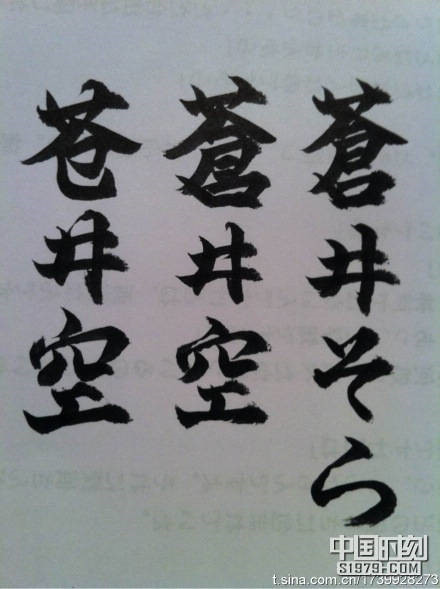 蒼井そら
蒼井空
苍井空
中国时刻
S1979.COM
t.sina.com.cn/1739928273